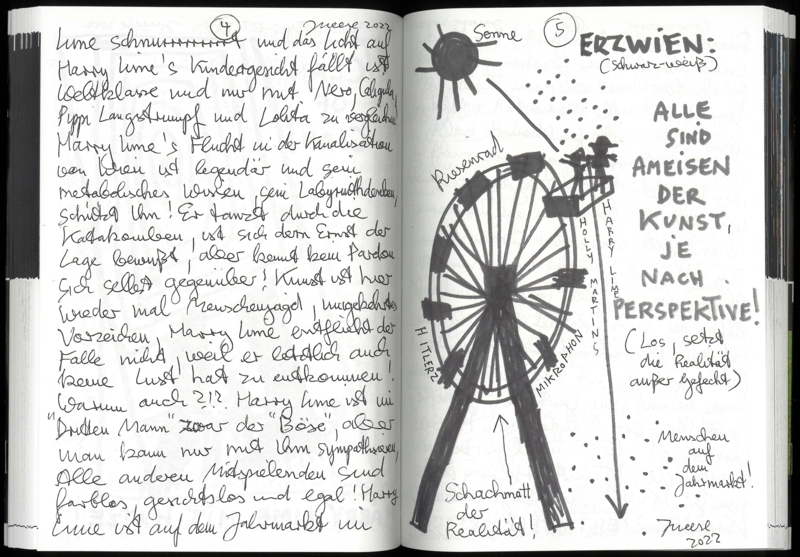 4
JMeese 2022
Lime schnurrrrrrrrt und das Licht auf
Harry Lime's Kindergesicht fällt ist
Weltklasse und nur mit Nero, Caligula,
Pippi Langstrumpf und Lolita zu vergleichen
Harry Lime's Flucht in der Kanalisation
von Wien ist legendär und sein
metabolisches Wissen, sein Labyrinthdenken,
schützt ihn! Er tanzt durch die
Katakomben, ist sich dem Ernst der
Lage bewußt, aber kennt kein Pardon
sich selbst gegenüber! Kunst ist hier
wieder mal Menschenjagd, umgekehrtes
Vorzeichen, Harry Lime entflieht der
Falle nicht, weil er letztlich auch
keine Lust hat zu entkommen!
Warum auch?!? Harry Lime ist im
"Dritten Mann" zwar der "Böse", aber
man kann nur mit ihm sympathisieren,
Alle anderen Mitspielenden sind
farblos, gesichtslos und egal! Harry
Lime ist auf dem Jahrmarkt im
5
Sonne
ERZWIEN:
(schwarz-weiß)
Riesenrad
ALLE
SIND
AMEISEN
DER
KUNST,
JE
NACH
PERSPEKTIVE!
(Los, setzt
die Realität
außer gefecht)
HOLLY MARTINS
HARRY LIME
HITLERZ
MIKROPHON
Menschen
auf
dem
Jahrmarkt!
Schachmatt
der
Realität!
JMeese
2022